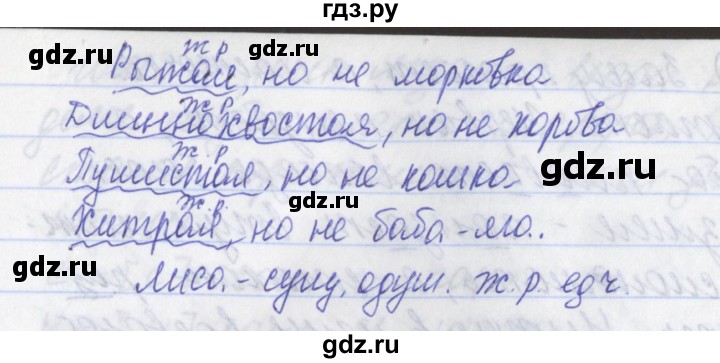 гдз.ру
gdz.ru gdz.ru
ж р
Рыжая, но не морковка
gdz.ru
ж р
Длиннохвостая, но не корова
ж р
Пушистая, но не кошка
gdz.ru
gdz.ru
ж р
Хитрая, но не баба-яга.
gdz.ru gdz.ru
Лиса - сущ, одуш. ж.р. ед ч.
gdz.ru gdz.ru